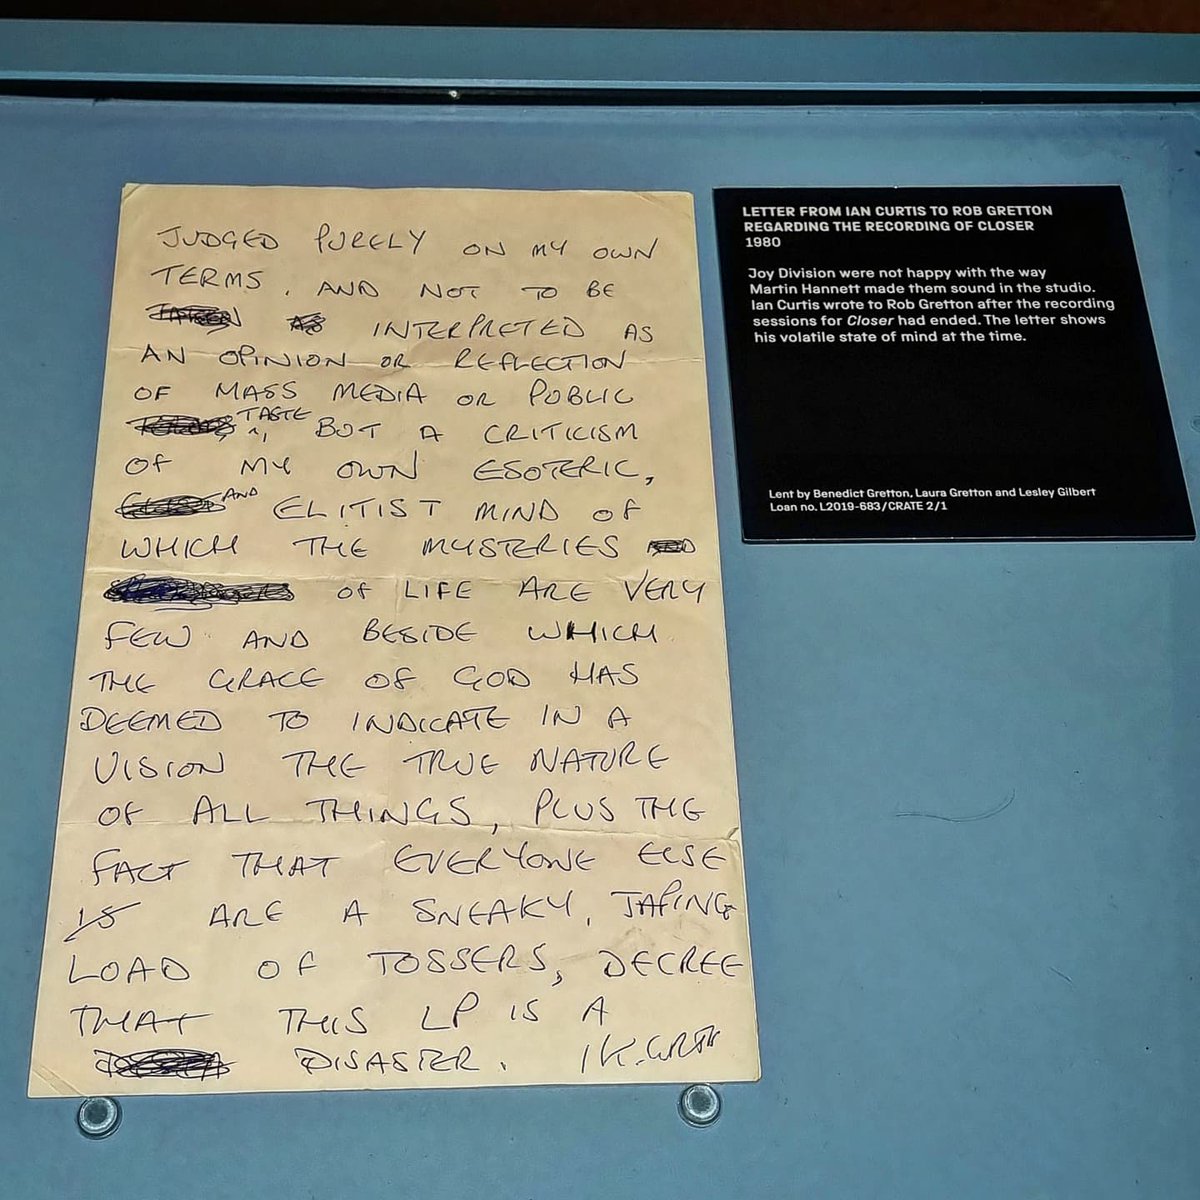 JUDGED PURELY ON MY OWN
TERMS, AND NOT TO BE
INTERPRETED AS
AN OPINION OR REFLECTION
OF MASS MEDIA OR PUBLIC
TASTE, BUT A CRITICISM
OF MY OWN ESOTERIC,
AND ELITIST MIND OF
WHICH THE MYSTERIES
OF LIFE ARE VERY
FEW AND BESIDE WHICH
THE GRACE OF GOD HAS
DEEMED TO INDICATE IN A
VISION THE TRUE NATURE
OF ALL THINGS, PLUS THE
FACT THAT EVERYONE ELSE
IS ARE A SNEAKY, JAPING
LOAD OF TOSSERS, DECREE
THAT THIS LP IS A
DISASTER. I K. CURTIS
LETTER FROM IAN CURTIS TO ROB GRETTON
REGARDING THE RECORDING OF CLOSER
1980
Joy Division were not happy with the way
Martin Hannett made them sound in the studio.
Ian Curtis wrote to Rob Gretton after the recording
sessions for Closer had ended. The letter shows
his volatile state of mind at the time.
Lent by Benedict Gretton, Laura Gretton and Lesley Gilbert
Loan no. L2019-683/CRATE 2/1